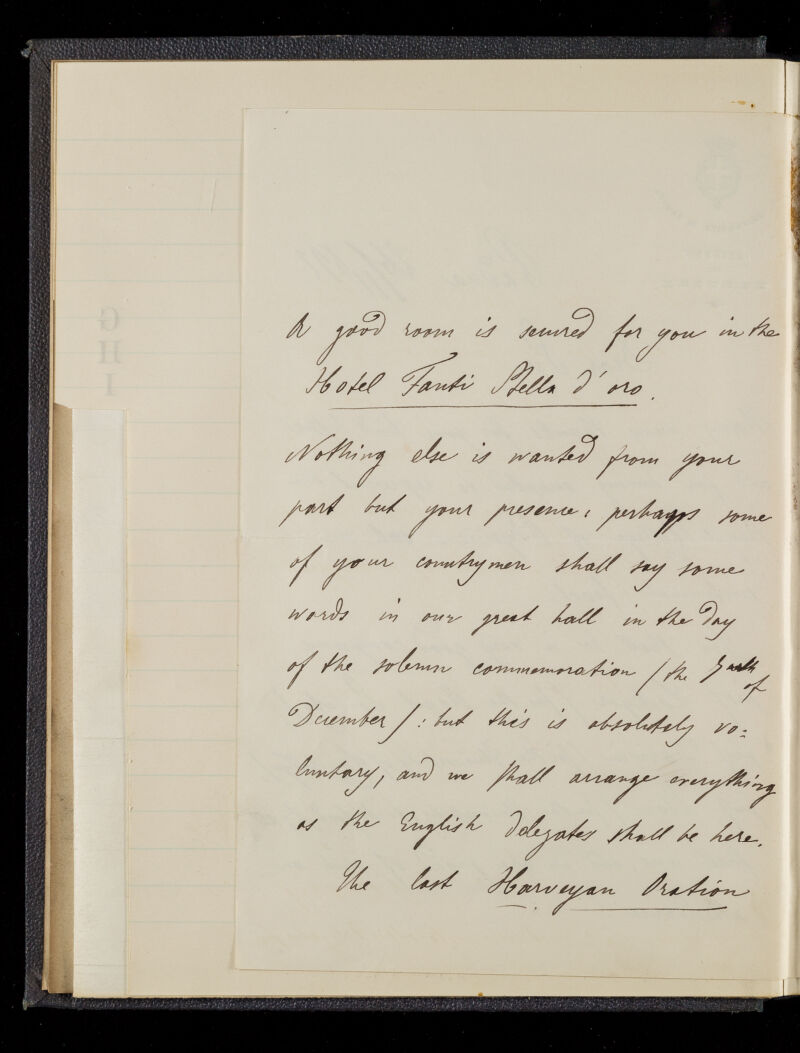 A good room is secured for you in the
Hotel Fanti Stella d'oro.
Nothing else is wanted from your
part but your presence: perhapps some
of your countrymen shall say some
words in our great hall in the day
of the solemn commemoration (the
of
December): but this is absolutely vo:
luntary, and we shall arrange everything
as the English delegates shall be here.
The last Harveyan Oration
G
H
I